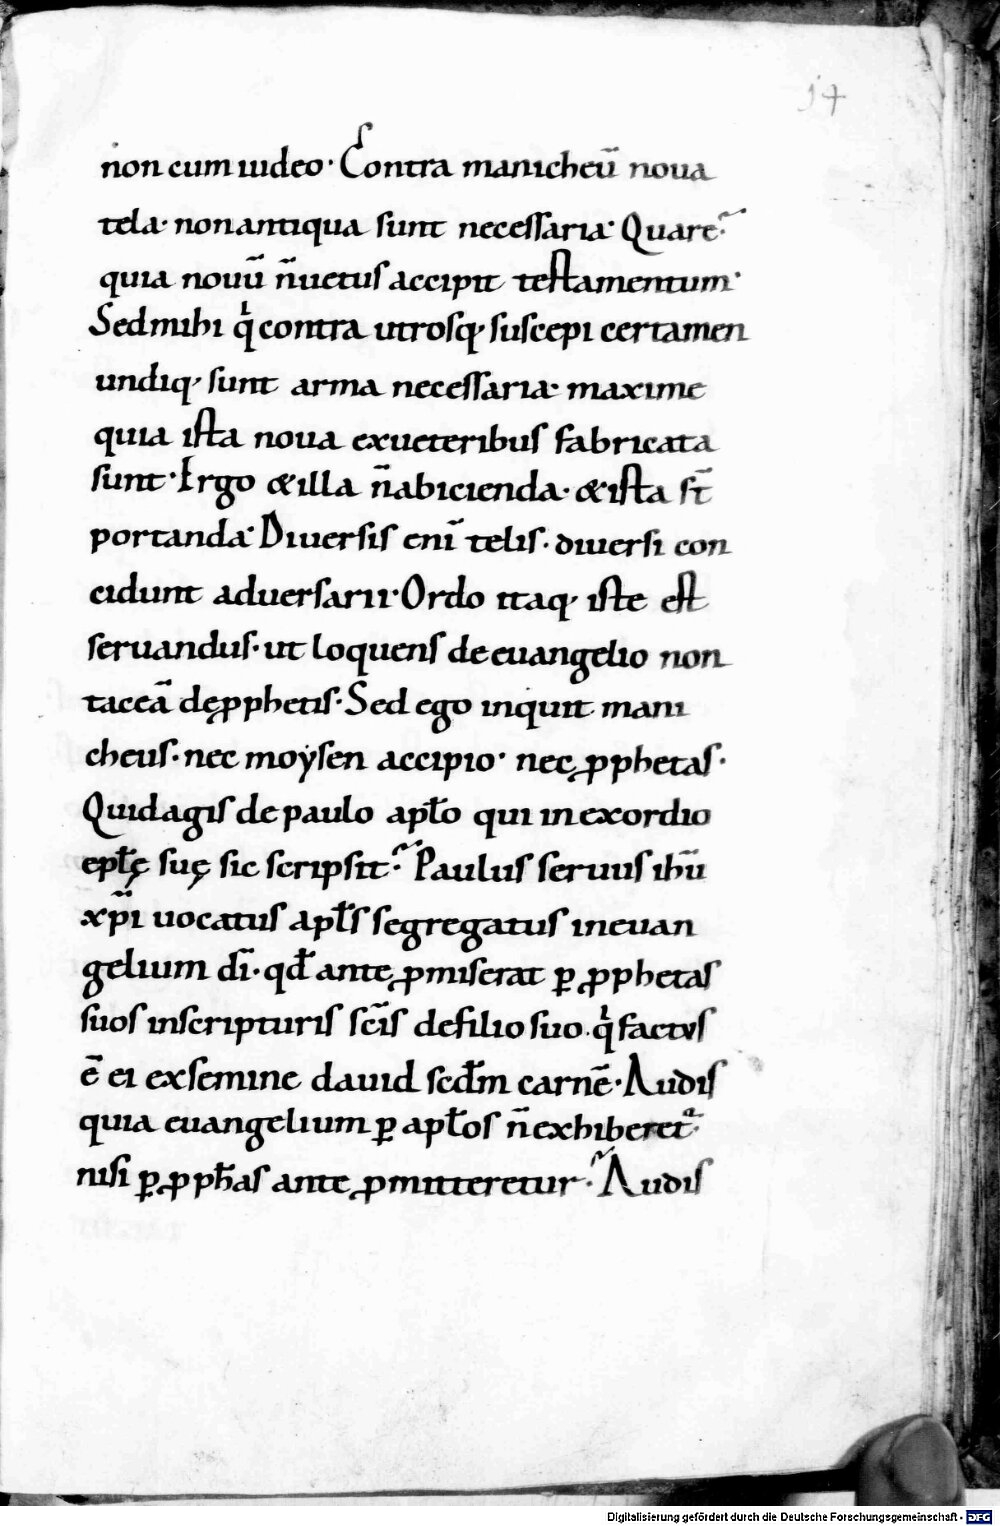 14
non cum iudeo· Contra manicheū noua
tela· non antiqua sunt necessaria· Quare?
quia nouū n̄ uetus accipit testamentum·
Sed mihi qͥ contra utrosq; suscepi certamen
undiq; sunt arma necessaria· maxime
quia ista noua ex ueteribus fabricata
sunt· Ergo & illa n̄ abicienda· & ista st̄
portanda· Diuersis eni̅ telis· diuersi con
cidunt aduersarii· Ordo itaq; iste est
seruandus· ut loquens de euangelio non
taceā de ꝓphetis· Sed ego inquit mani
cheus· nec moẏsen accipio· nec ꝓphetas·
Quid agis de paulo apl̅o qui in exordio
epl̅ę suę sic scripsit? Paulus seruus ihū
xp̅i uocatus apl̅s segregatus in euan
gelium di̅· qd̅ ante ꝓmiserat ꝑ ꝓphetas
suos in scripturis sc̅is de filio suo· qͥ factus
ē ei ex semine dauid scd̅m carnē· Audis
quia euangelium ꝑ apl̅os n̄ exhiberet᷑·
nisi ꝑ ꝓph̅as ante ꝓmitteretur? Audis
Digitalisierung gefördert durch die Deutsche Forschungsgemeinschaft - DFG